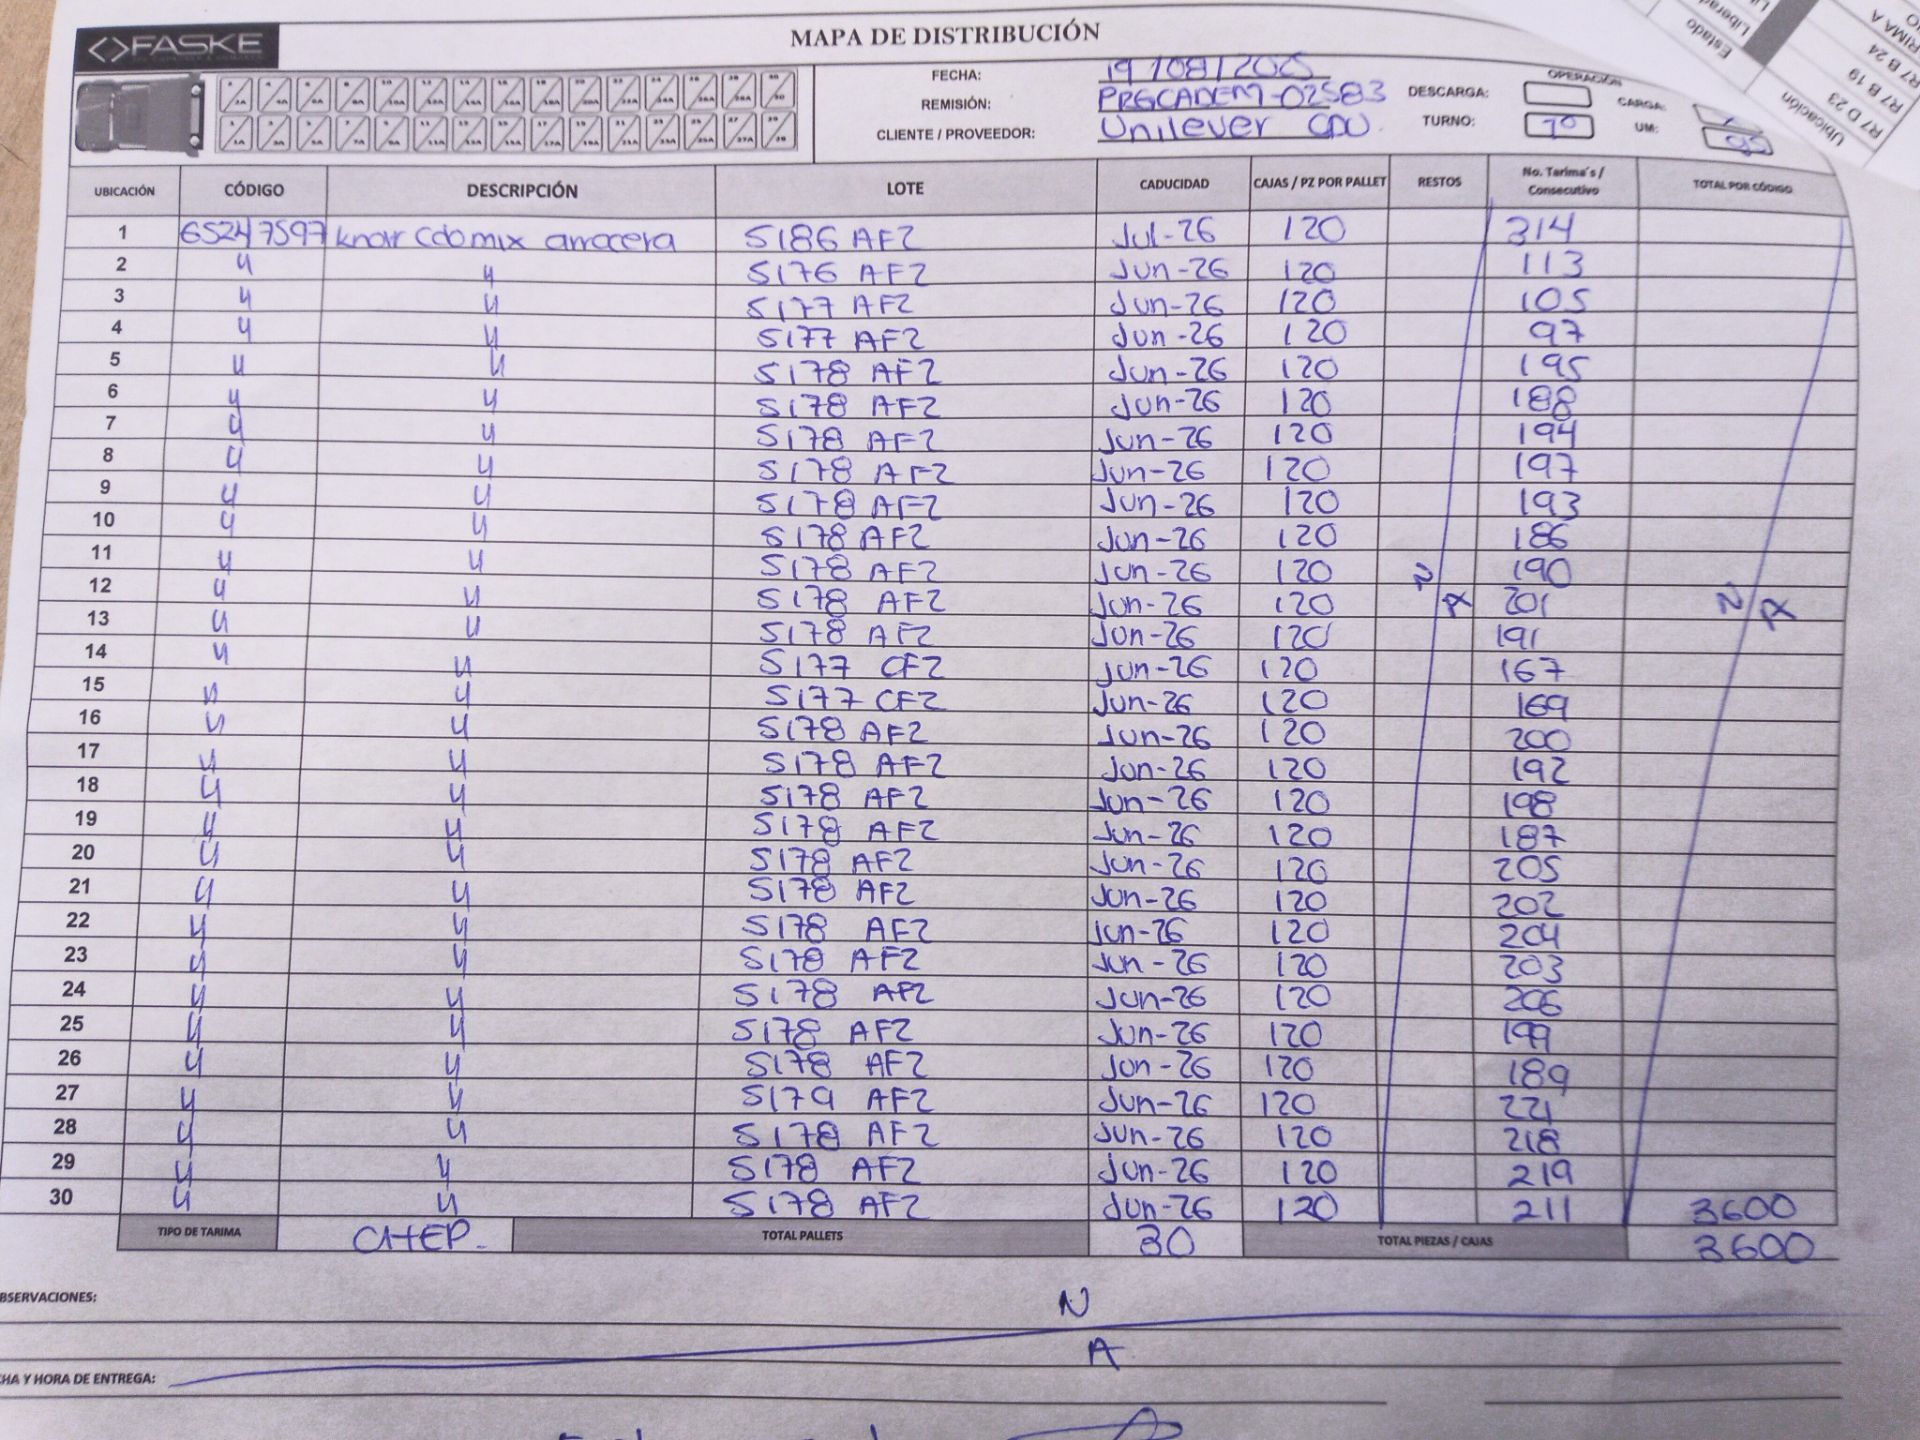 <>FASKE
MAPA DE DISTRIBUCIÓN
FECHA: 19/08/2025
REMISIÓN: PRGCADEM-02583
CLIENTE / PROVEEDOR: Unilever CDU
OPERACIÓN
DESCARGA: CARGA:
TURNO: 1º UM:
Estado
Ubicación
R7 B 24
R7 B 19
R7 D 23
UBICACIÓN CÓDIGO DESCRIPCIÓN LOTE CADUCIDAD CAJAS / PZ POR PALLET RESTOS No. Tarima´s / Consecutivo TOTAL POR CÓDIGO
1 65247597 knorr cdo mix arrocera 5186 AF2 Jul-26 120 314
2 " " 5176 AF2 Jun-26 120 113
3 " " 5177 AF2 Jun-26 120 105
4 " " 5177 AF2 Jun-26 120 97
5 " " 5178 AF2 Jun-26 120 195
6 " " 5178 AF2 Jun-26 120 188
7 " " 5178 AF2 Jun-26 120 194
8 " " 5178 AF2 Jun-26 120 197
9 " " 5178 AF2 Jun-26 120 193
10 " " 5178 AF2 Jun-26 120 186
11 " " 5178 AF2 Jun-26 120 190
12 " " 5178 AF2 Jun-26 120 N/A 201 N/A
13 " " 5178 AF2 Jun-26 120 191
14 " " 5177 CF2 Jun-26 120 167
15 " " 5177 CF2 Jun-26 120 169
16 " " 5178 AF2 Jun-26 120 200
17 " " 5178 AF2 Jun-26 120 192
18 " " 5178 AF2 Jun-26 120 198
19 " " 5178 AF2 Jun-26 120 187
20 " " 5178 AF2 Jun-26 120 205
21 " " 5178 AF2 Jun-26 120 202
22 " " 5178 AF2 Jun-26 120 204
23 " " 5178 AF2 Jun-26 120 203
24 " " 5178 AF2 Jun-26 120 206
25 " " 5178 AF2 Jun-26 120 199
26 " " 5178 AF2 Jun-26 120 189
27 " " 5179 AF2 Jun-26 120 221
28 " " 5178 AF2 Jun-26 120 218
29 " " 5178 AF2 Jun-26 120 219
30 " " 5178 AF2 Jun-26 120 211 3600
TIPO DE TARIMA CHEP. TOTAL PALLETS 30 TOTAL PIEZAS / CAJAS 3600
BSERVACIONES: N
A
HA Y HORA DE ENTREGA: